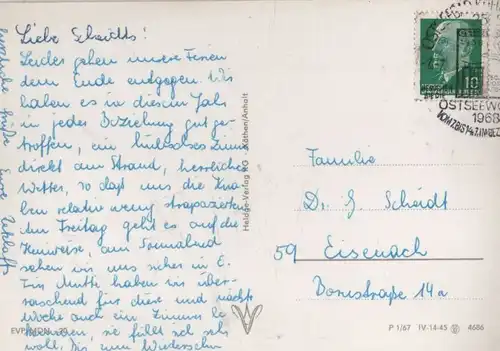 Liebe Scheidts!
Leider gehen unsere Ferien
dem Ende entgegen. Wir
haben es in diesem Jahr
in jeder Beziehung gut ge-
troffen, ein hübsches Zimmer
direkt am Strand, herrliches
Wetter, so daß uns die Kna-
ben relativ wenig strapazierten.
Am Freitag geht es auf die
Heimreise, am Sonnabend
sehen wir uns sicher in E.
haben wir über-
raschend für diese und nächste
Woche auch ein Zimmer be-
kommen, sie fühlt sich sehr
wohl. Bis zum Wiedersehn
herzliche Grüße Eure
Heldge-Verlag KG Köthen/Anhalt
EVP MDN
10
OSTSEEW
1968
Familie
Dr. G. Scheidt
59 Eisenach
Bornstraße 14a
P 1/67 IV-14-45 4686